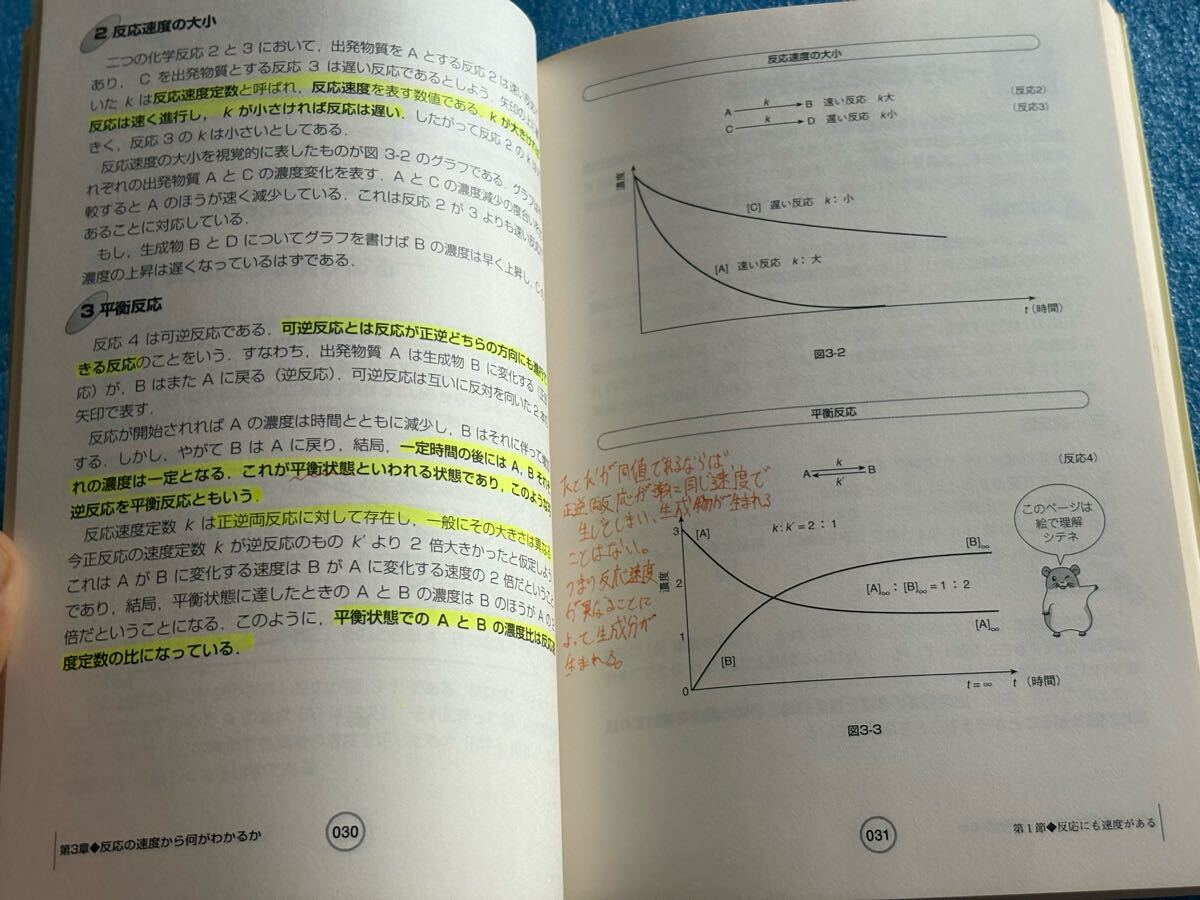 2 反応速度の大小
二つの化学反応 2 と 3 において，出発物質を A とする反応 2 は速い反応で
あり， C を出発物質とする反応 3 は遅い反応であるとしよう．矢印の上に
いた k は反応速度定数と呼ばれ，反応速度を表す数値である．k が大きければ
反応は速く進行し， k が小さければ反応は遅い．したがって反応 2 の k は
きく，反応 3 の k は小さいとしてある．
反応速度の大小を視覚的に表したものが図 3-2 のグラフである．グラフは
れぞれの出発物質 A と C の濃度変化を表す．A と C の濃度減少の度合いを
較すると A のほうが速く減少している．これは反応 2 が 3 よりも速い反応
あることに対応している．
もし，生成物 B と D についてグラフを書けば B の濃度は早く上昇し，
濃度の上昇は遅くなっているはずである．
3 平衡反応
反応 4 は可逆反応である．可逆反応とは反応が正逆どちらの方向にも進行
きる反応のことをいう．すなわち，出発物質 A は生成物 B に変化する（正反
応）が，B はまた A に戻る（逆反応）．可逆反応は互いに反対を向いた 2 本
矢印で表す．
反応が開始されれば A の濃度は時間とともに減少し，B はそれに伴って
する．しかし，やがて B は A に戻り，結局，一定時間の後には A，B それぞ
れの濃度は一定となる．これが平衡状態といわれる状態であり，このような
逆反応を平衡反応ともいう．
反応速度定数 k は正逆両反応に対して存在し，一般にその大きさは異なる
今正反応の速度定数 k が逆反応のもの k′ より 2 倍大きかったと仮定しよう
これは A が B に変化する速度は B が A に変化する速度の 2 倍だということ
であり，結局，平衡状態に達したときの A と B の濃度は B のほうが A の 2
倍だということになる．このように，平衡状態での A と B の濃度比は反応
度定数の比になっている．
第3章◆反応の速度から何がわかるか
030
反応速度の大小
A k B 速い反応 k大 （反応2）
C k D 遅い反応 k小 （反応3）
濃度
[C] 遅い反応 k：小
[A] 速い反応 k：大
t（時間）
図3-2
平衡反応
A k k′ B （反応4）
kとk′が同値であるならば
正逆反応が常に同じ速度で
生じてしまい、生成物が生まれる
ことはない。
つまり反応速度
が異なることに
よって生成分が
生まれる。
このページは
絵で理解
シテネ
濃度
3
2
1
0
[A]
k：k′＝2：1
[B]∞
[A]∞：[B]∞＝1：2
[A]∞
[B]
t＝∞
t （時間）
図3-3
031
第1節◆反応にも速度がある